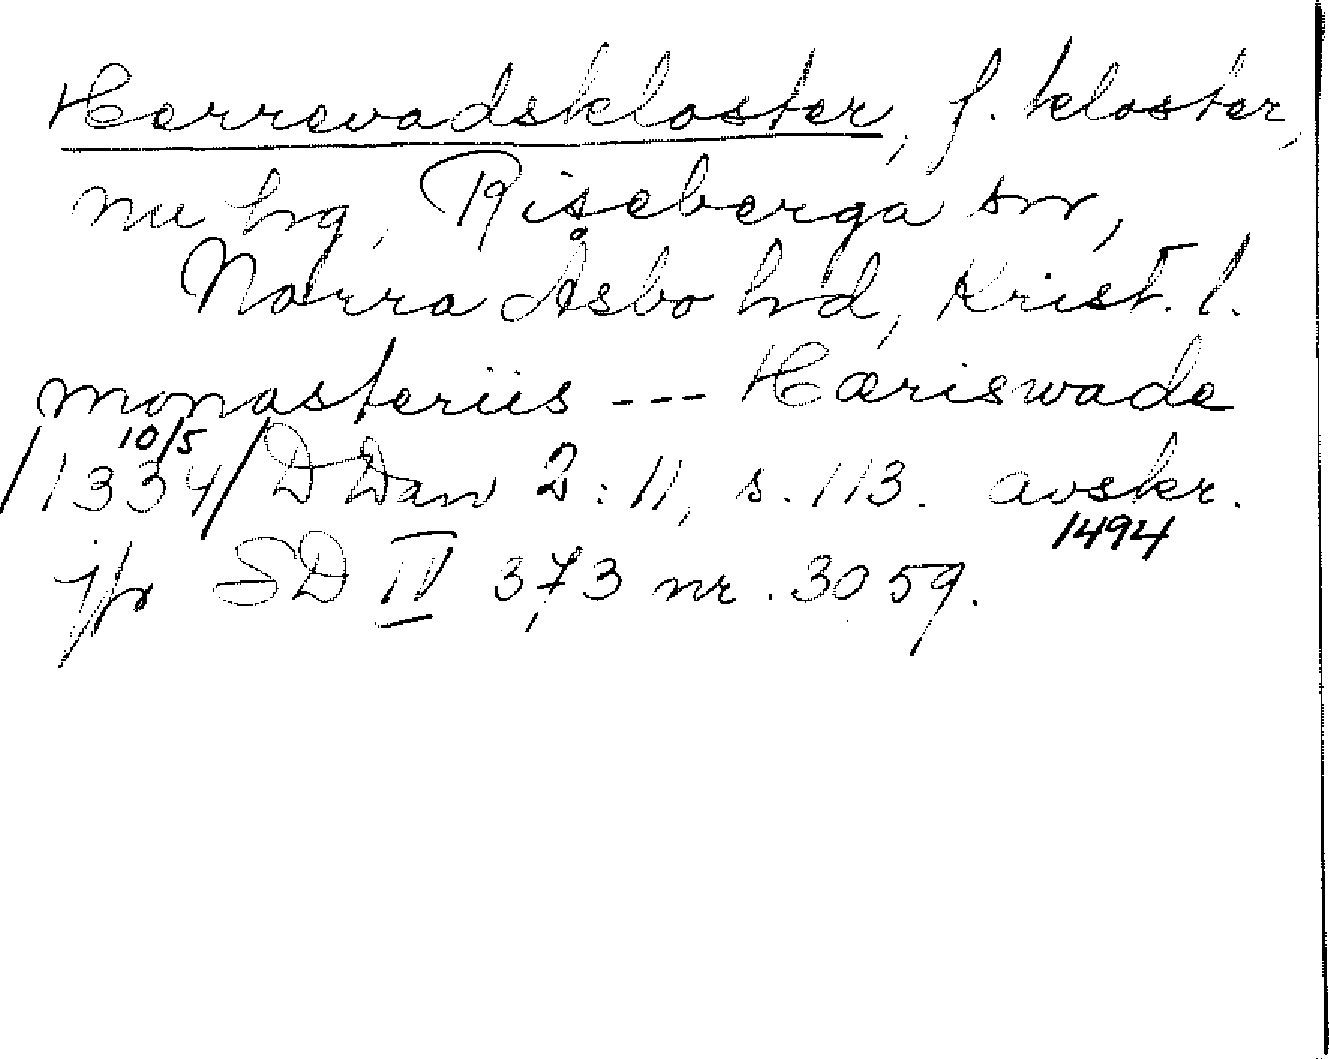 Herrevadskloster, f. kloster,
nu hg, Riseberga sn,
Norra Åsbo hd, Krist. l.
monasteriis --- Hæriswade
10/5
/1334/ DDan 2:11, s. 113. avskr.
1494
jfr SD IV 373 nr. 3059.